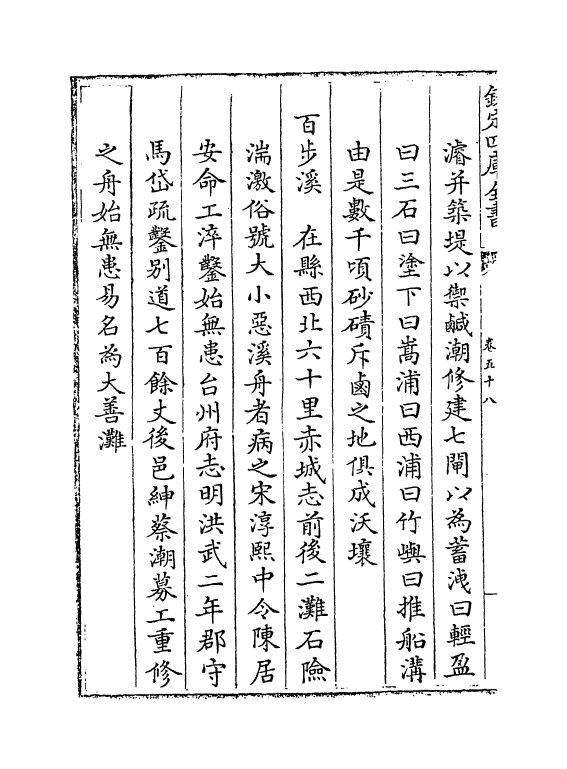 欽定四庫全書
卷五十八
濬并築堤以禦鹹潮修建七閘以為蓄洩曰輕盈
曰三石曰塗下曰嵩浦曰西浦曰竹嶼曰推船溝
由是數千頃砂磧斥鹵之地俱成沃壤
百步溪　在縣西北六十里赤城志前後二灘石險
湍激俗號大小惡溪舟者病之宋淳熙中令陳居
安命工淬鑿始無患台州府志明洪武二年郡守
馬岱疏鑿别道七百餘丈後邑紳蔡潮募工重修
之舟始無患易名為大善灘